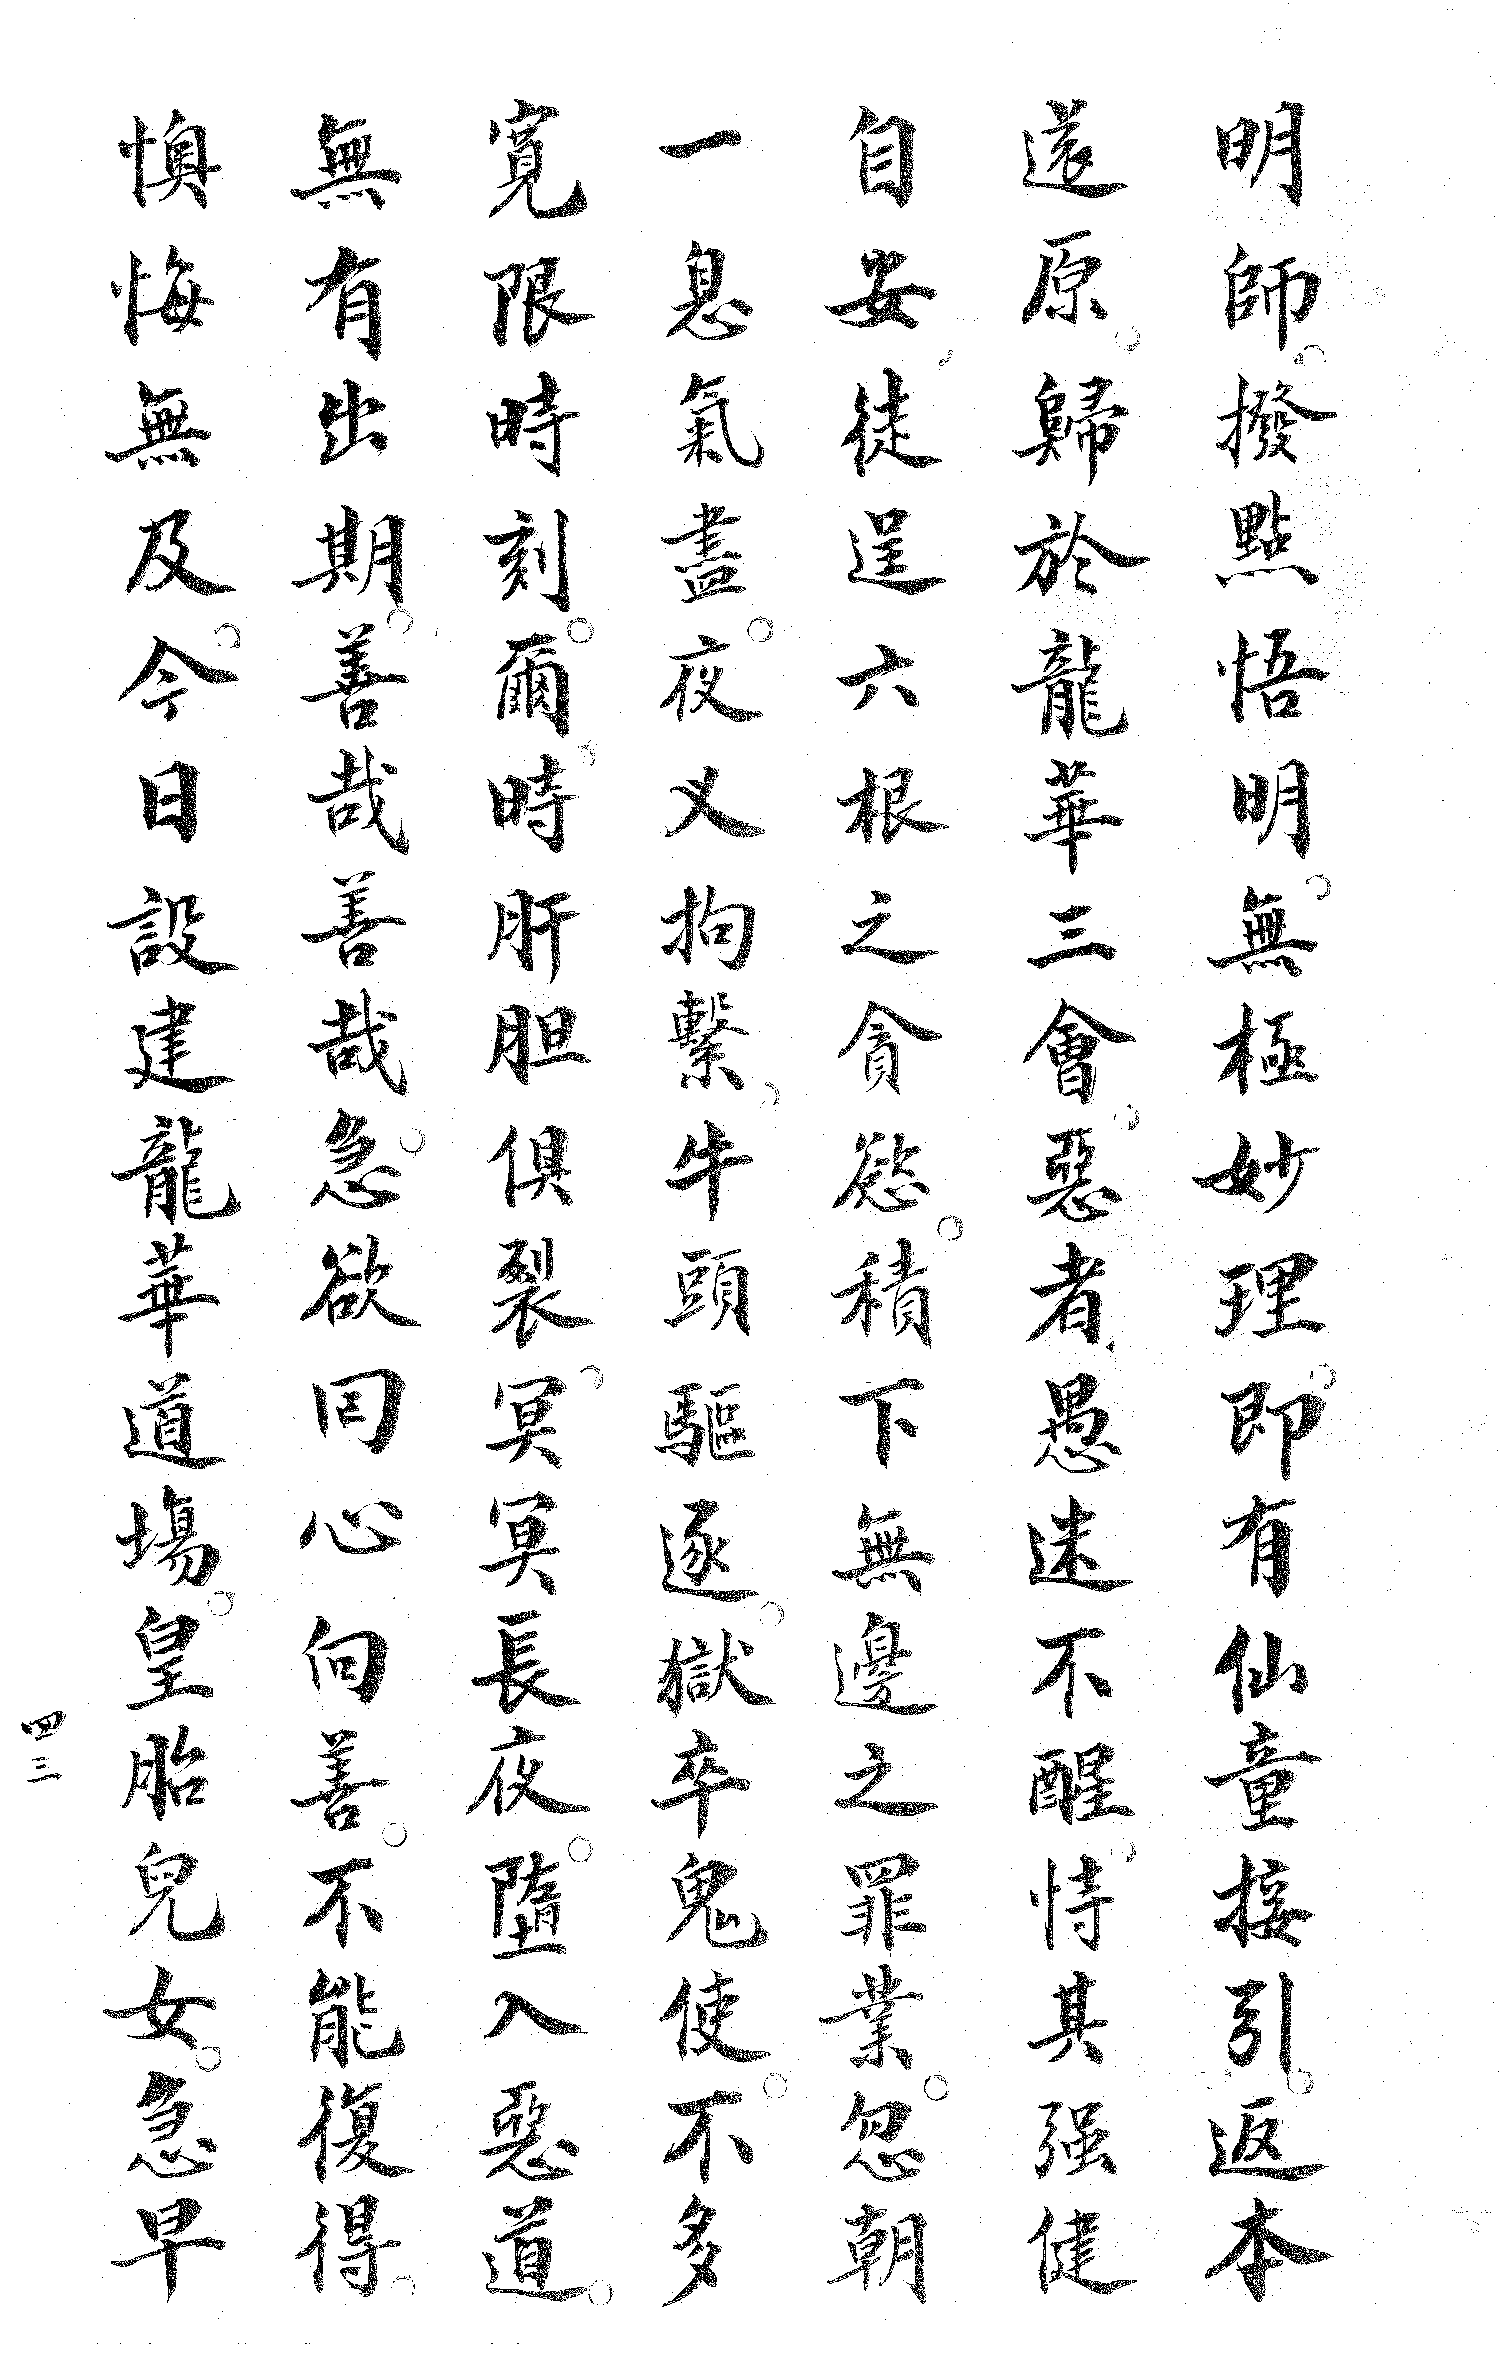 明師。撥點悟明。無極妙理。即有仙童接引。返本
還原。歸於龍華三會。惡者愚迷不醒。恃其强健
自安。徒逞六根之貪慾。積下無邊之罪業。忽朝
一息氣盡。夜叉拘繫。牛頭驅逐。獄卒鬼使。不多
寬限時刻。爾時肝胆俱裂。冥冥長夜。墮入惡道。
無有出期。善哉善哉。急欲囘心向善。不能復得。
懊悔無及。今日設建龍華道場。皇胎兒女。急早
四三